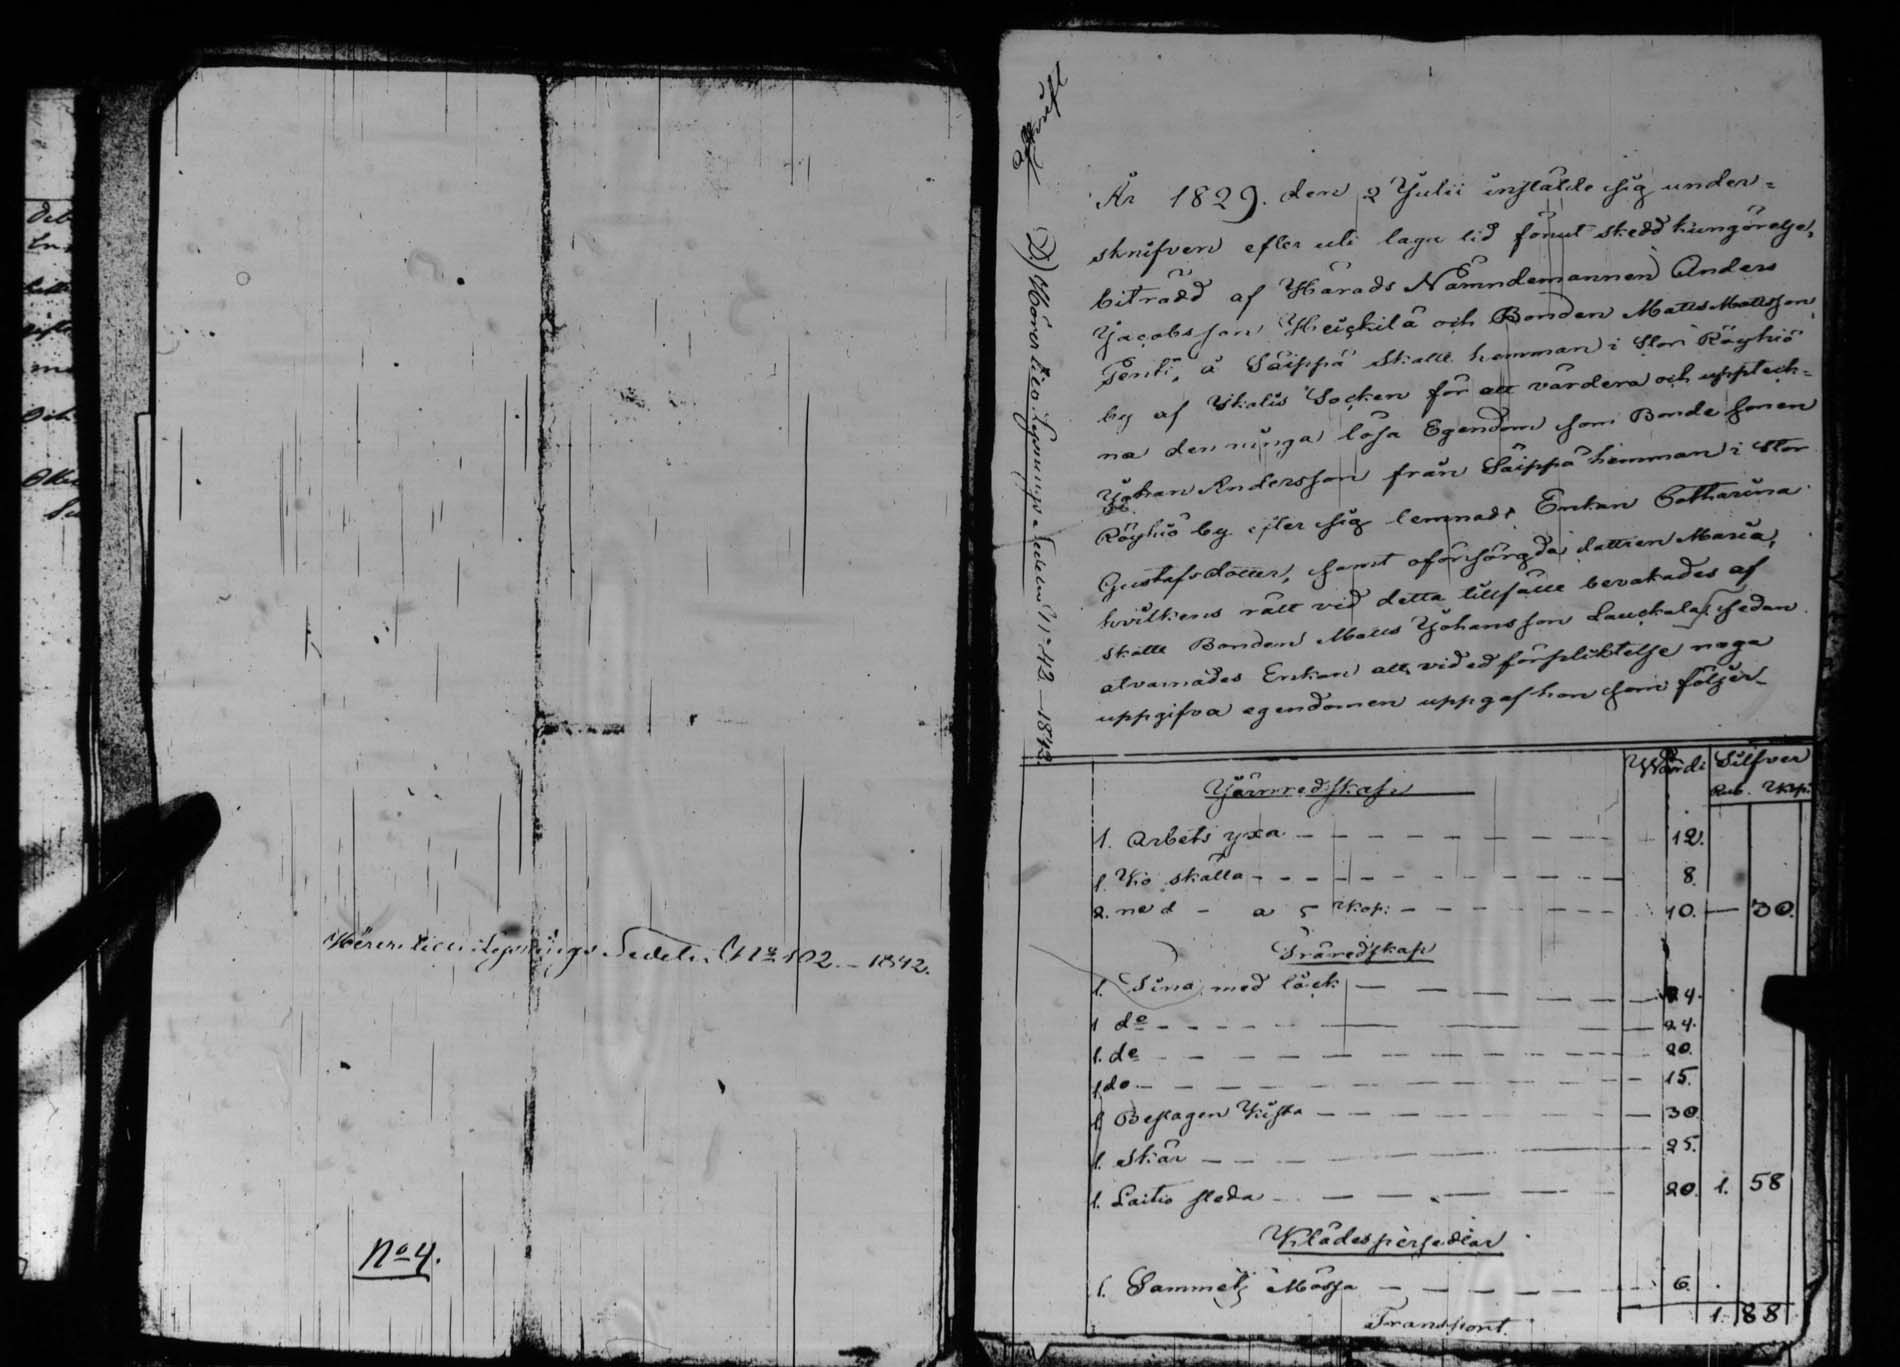 No 4.
År 1829. den 2 Julii instälde sig under=
skrifven efter uti laga tid förut skedd kungörelse,
biträdd af Härads Nämndemannen Anders
Jacobsson Heickilä och Bonden Matts Mattsson
Pentti, å Säippä Skatte hemman i Stor Röyhiö
by af Socken för att värdera och uppteck=
na den ringa lösa Egendom som Bonde sonen
Johan Andersson från Säippä hemman i Stor
Röyhiö by efter sig lemnadt Enkan Catharina
Gustafsdotter, samt oförsörgda dottren Maria,
hvilkens rätt vid detta tillfälle bevakades af
skatte Bonden Matts Johansson Lauckala; sedan
atvarnades Enkan att vid ed förpliktelse noga
uppgifva egendomen uppgaf hon som följer
Värde Silfver
Rub. Kop:
Järnredskap
1. Arbets yxa — 12.
1. Ko skälla — 8.
2. ne d — a 5 Kop: — 10. — 30.
Träredskap
1. Tina med låck — 24.
1 do — 24.
1. do — 20.
1 do — 15.
1 Beslagen Kista — 30.
1. Skär — 25.
1. Laitio släda — 20. 1. 58
Klädespersedlar
1. Sammets Mössa — 6.
Transport. 1. 88